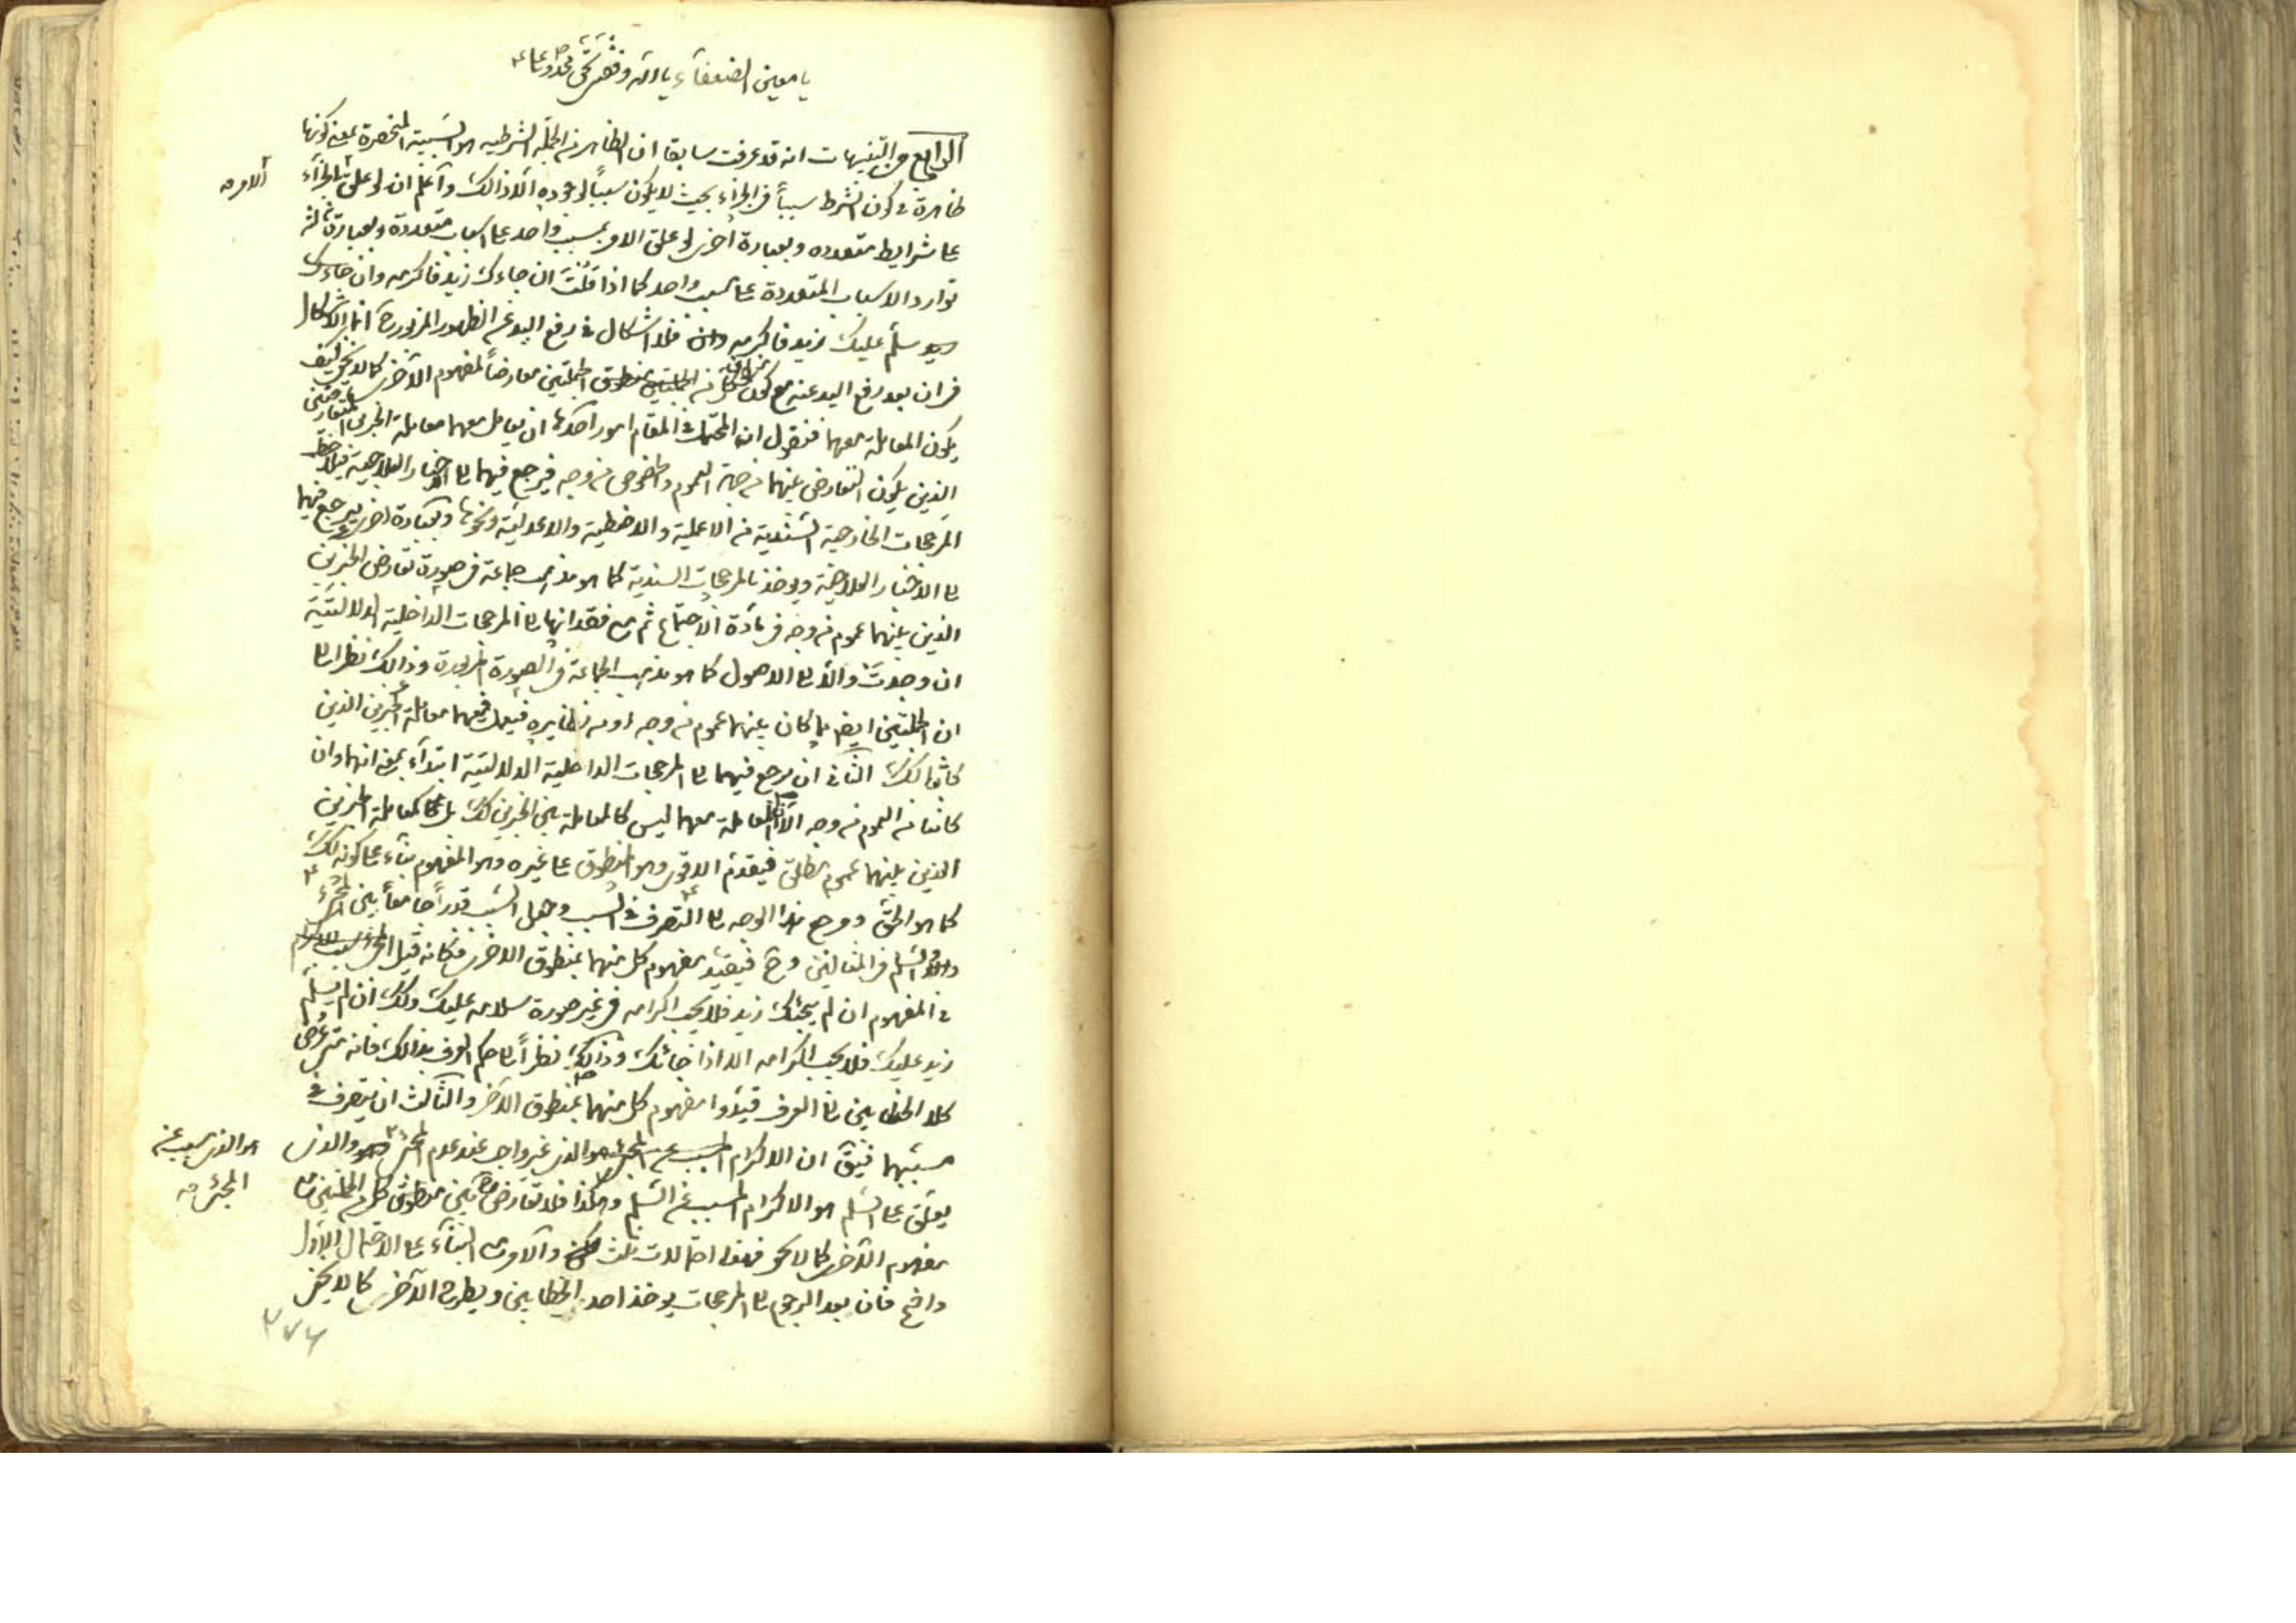 يا معين الضعفاء يا الله وفقني بحق محمد وعلي
الرابع من التنبيهات انه قد عرفت سابقا ان الظاهر من الجملة الشرطيه هو السببية المنحصرة بمعنى كونها
ظاهرة في كون الشرط سببا في الجزاء بحيث لا يكون سببا لوجوده الا ذالك واعلم ان لو علق الجزاء
الامر
على شرايط متعدده وبعبارة اخرى لو علق الامر بمسبب واحد على اسباب متعددة وبعبارة ثالثة
توارد الاسباب المتعددة على مسبب واحد كما اذا قلت ان جاءك زيد فاكرمه وان جاءك
سلم عليك زيد فاكرمه فلا اشكال في رفع اليد عن الظهور المزبور ح انما الاشكال
في ان بعد رفع اليد عنه مع كون كل من منطوق الجملتين معارضا لمفهوم الاخرى كما لا يخفى كيف
يكون المعاملة معهما فنقول ان المحتملات في المقام امور احدها ان يعامل معهما معاملة الخبرين المتعارضين
الذين يكون التعارض بينهما من جهة العموم والخصوص من وجه فيرجع فيهما الى الاخبار العلاجية فيلاحظ
المرجحات الخارجية السندية من الاعلمية والاضبطية والاعدلية ونحوها وبعبارة اخرى يرجع فيهما
الى الاخبار العلاجية ويوخذ بالمرجحات السندية كما هو مذهب جماعة في صورة تعارض الخبرين
الذين بينهما عموم من وجه في مادة الاجتماع ثم مع فقدانها الى المرجحات الداخلية الدلالتية
ان وجدت والا الى الاصول كما هو مذهب الجماعة في الصورة المزبورة وذالك نظرا الى
ان الجملتين ايضا كان بينهما عموم من وجه او من نظايره فيعمل فيهما معاملة الخبرين الذين
كانا كذلك الثاني ان يرجع فيهما الى المرجحات الداخلية الدلالتية ابتداء بمعنى انهما وان
كانتا من العموم من وجه الا ان المعاملة معهما ليس كالمعاملة بين الخبرين كذلك بل كمعاملة الخبرين
الذين بينهما عموم مطلق فيقدم الاقوى وهو المنطوق على غيره وهو المفهوم بناء على كونه كذلك
كما هو الحق ومرجع هذا الوجه الى التصرف في السبب وجعل السبب قدرا جامعا بين المجئ
والسلم في المثالين وح فيقيد مفهوم كل منهما بمنطوق الاخرى فكانه قيل
في المفهوم ان لم يجئك زيد فلا يجب اكرامه في غير صورة سلامه عليك وكذلك ان لم يسلم
زيد عليك فلا يجب اكرامه الا اذا جائك وذالك نظرا الى حكم العرف بذالك فانه متى عرض
كلا الخطابين الى العرف قيدوا مفهوم كل منهما بمنطوق الاخر والثالث ان يتصرف في
مسببهما فيق ان الاكرام الذي غير واجب عند عدم المجئ والذي
هو الذي مسبب عن
المجئ
يعلق على السلم هو الاكرام المسبب عن السلم وهكذا فلا تعارض ح بين منطوق كل من الجملتين مع
مفهوم الاخرى كما لا يخفى فهنا احتمالات ثلث والامر البناء على الاحتمال الاول
واضح فان بعد الرجوع الى المرجحات يوخذ احد الخطابين ويطرح الاخر كما لا يخفى
٣٧٦